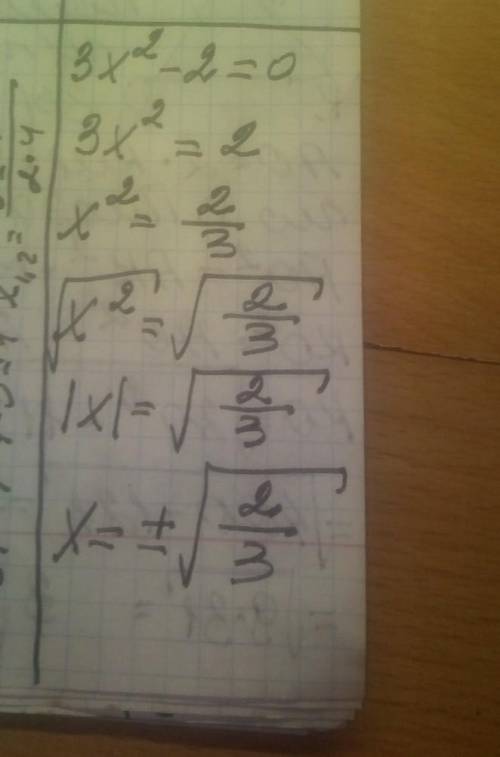 3x² - 2 = 0
3x² = 2
x² = 2/3
√x² = √2/3
|x| = √2/3
x = ± √2/3